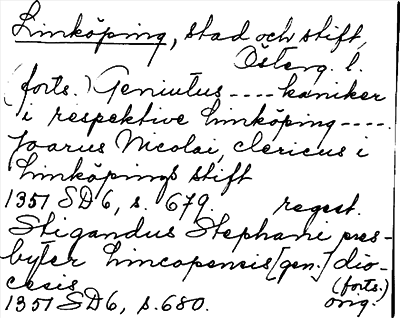 Linköping, stad och stift,
Österg. l.
(forts.) Geniutus ---- kaniker
i respektive Linköping ----
Joarus Nicolai, clericus i
Linköpings stift
1351 SD6, s. 679. regest.
Stigandus Stephani pres-
byter Lincopensis [gen.] dio-
cesis (forts.)
1351 SD6, s. 680. orig.